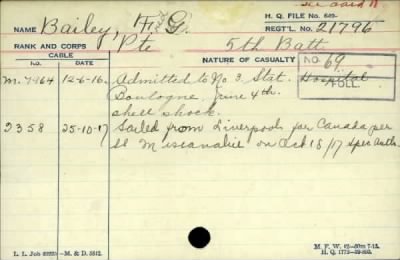 see card A
H. Q. FILE No. 649-
NAME Bailey, H. G. REGT'L. No. 21795
RANK AND CORPS Pte 5th Batt
CABLE NATURE OF CASUALTY
No. DATE NO. 69
FOLL.
M. 7464 12-6-16. Admitted to No 3 Stat. Hospital
Boulogne June 4th.
shell shock.
2358 25-10-17 Sailed from Liverpool for Canada per
SS Missanabie on Oct 18/17 Spec Auth.
L. L. Job 89225-M. & D. 5512.
M. F. W. 42-50m 7-15.
H. Q. 1772-39-893.